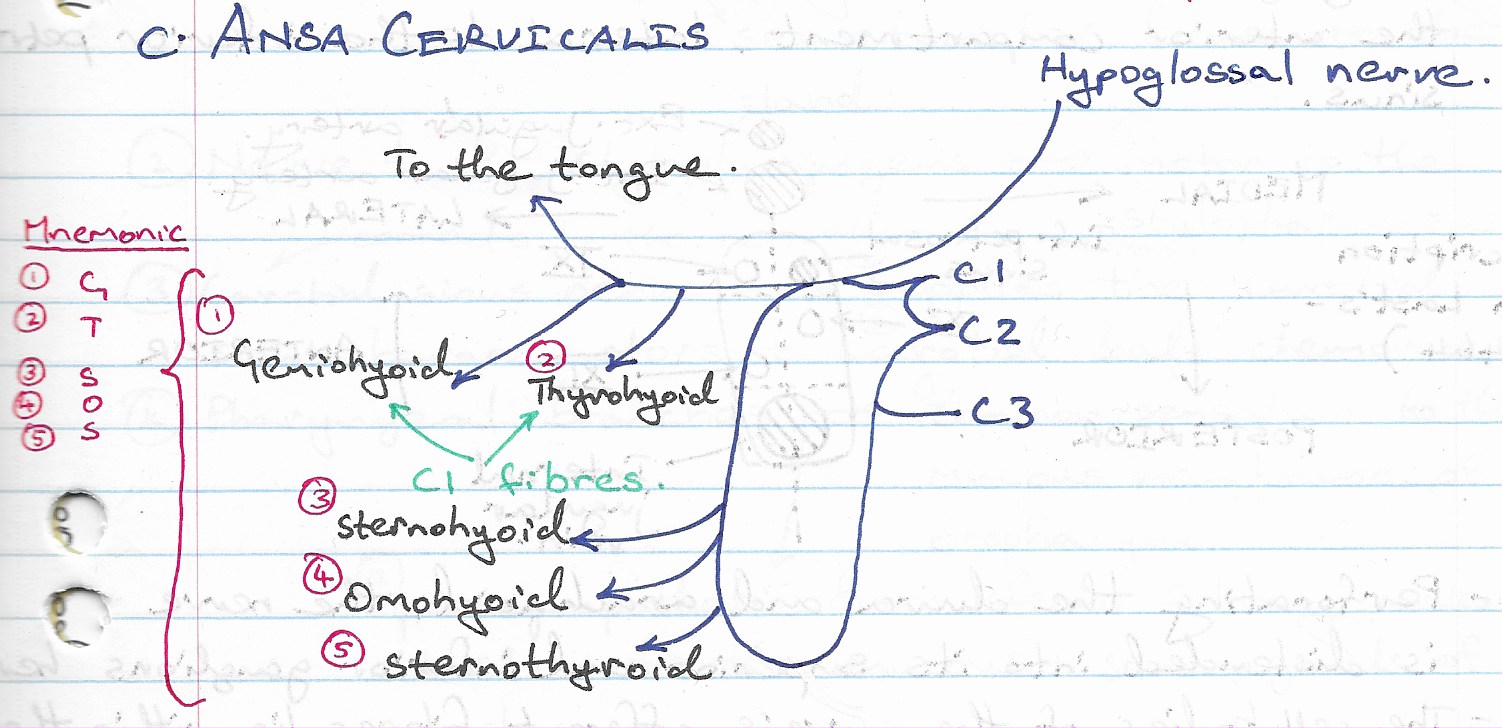 C. ANSA CERVICALIS
Hypoglossal nerve.
To the tongue.
Mnemonic
① G
② T
③ S
④ O
⑤ S
C1
C2
C3
① Geniohyoid
② Thyrohyoid
C1 fibres.
③ sternohyoid
④ Omohyoid
⑤ sternothyroid